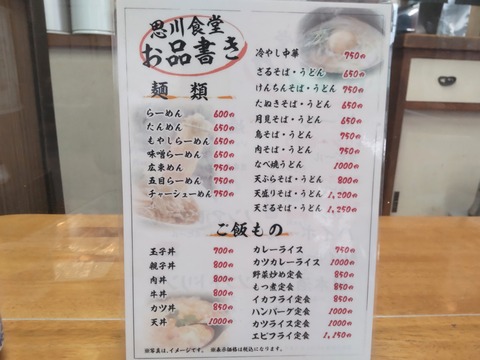 思川食堂
お品書き
麺 類
らーめん 600円
たんめん 650円
もやしらーめん 650円
味噌らーめん 650円
広東めん 750円
五目らーめん 750円
チャーシューめん 750円
冷やし中華 750円
ざるそば・うどん 650円
けんちんそば・うどん 750円
たぬきそば・うどん 650円
月見そば・うどん 650円
鳥そば・うどん 750円
肉そば・うどん 750円
なべ焼うどん 1000円
天ぷらそば・うどん 800円
天盛りそば・うどん 1,200円
天ざるそば・うどん 1,250円
ご飯もの
玉子丼 700円
親子丼 800円
肉丼 800円
牛丼 800円
カツ丼 850円
天丼 1000円
カレーライス 750円
カツカレーライス 1000円
野菜炒め定食 850円
もつ煮定食 850円
イカフライ定食 850円
ハンバーグ定食 1000円
カツライス定食 1000円
エビフライ定食 1,150円
※写真は、イメージです。 ※表示価格は税込になります。